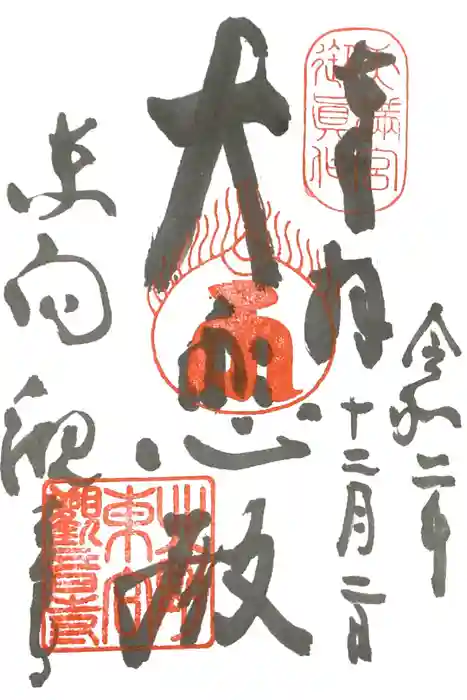 天満宮
御眞作
大悲殿
東向観音寺
令和二年
十二月二日
東向
觀音寺